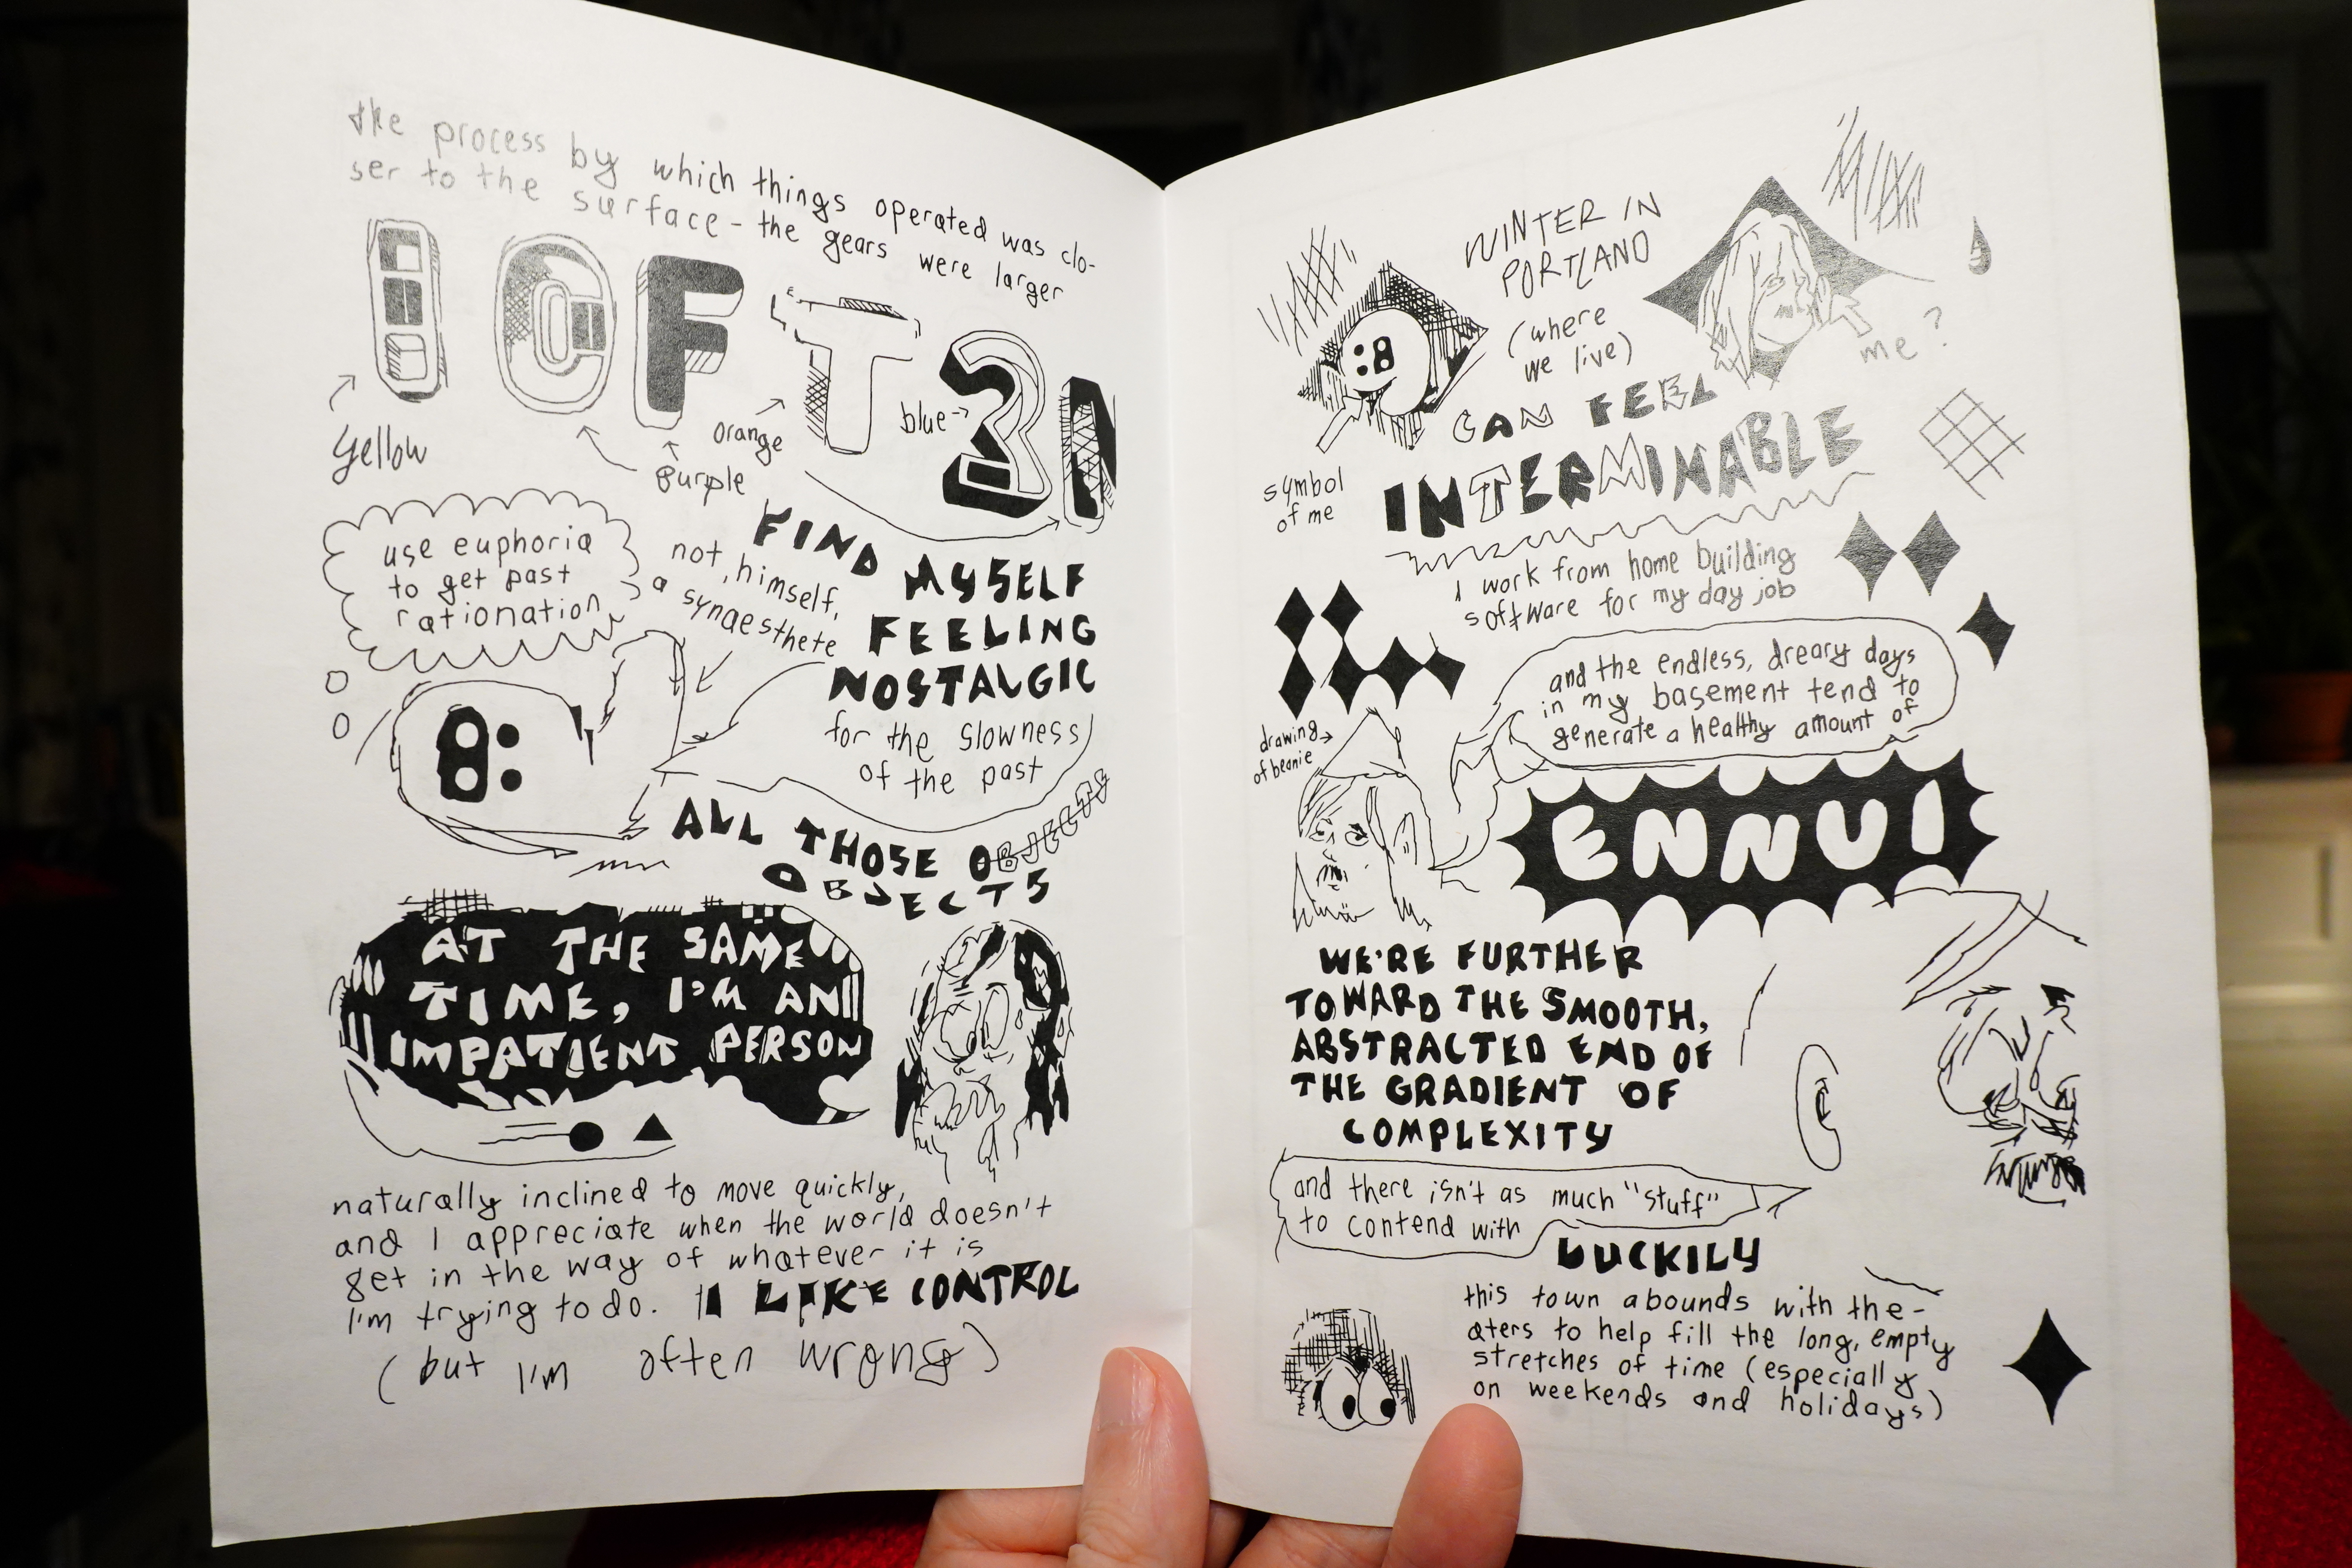 the process by which things operated was clo-
ser to the surface - the gears were larger
I OFT3N
yellow
purple
orange
blue
FIND MYSELF
FEELING
NOSTALGIC
for the slowness
of the past
use euphoria
to get past
rationation
not, himself,
a synaesthete
8:
ALL THOSE OBJECTS
OBJECTS
AT THE SAME
TIME, I'M AN
IMPATIENT PERSON
naturally inclined to move quickly,
and I appreciate when the world doesn't
get in the way of whatever it is
I'm trying to do. I LIKE CONTROL
(but I'm often wrong)
WINTER IN
PORTLAND
(where
we live)
:8
symbol
of me
me?
CAN FEEL
INTERMINABLE
I work from home building
software for my day job
and the endless, dreary days
in my basement tend to
generate a healthy amount of
drawing
of beanie
ENNUI
WE'RE FURTHER
TOWARD THE SMOOTH,
ABSTRACTED END OF
THE GRADIENT OF
COMPLEXITY
and there isn't as much "stuff"
to contend with
LUCKILY
this town abounds with the-
aters to help fill the long, empty
stretches of time (especially
on weekends and holidays)